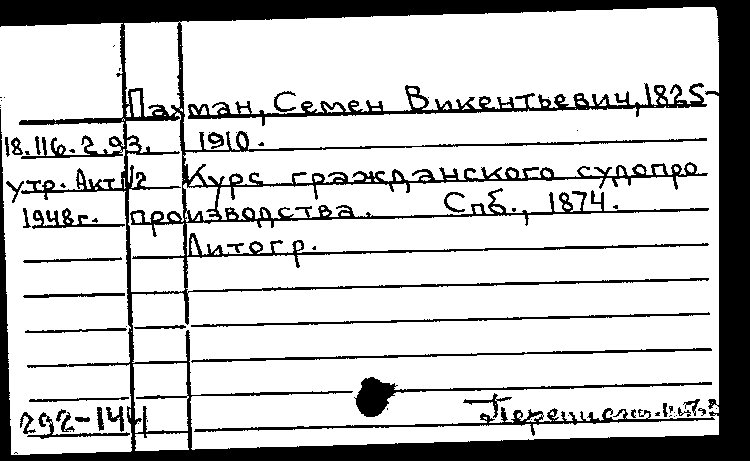 Пахман, Семен Викентьевич, 1825-
18.116.2.93. 1910.
утр. Акт №2 Курс гражданского судопро
1948г. производства. Спб., 1874.
Литогр.
292-144